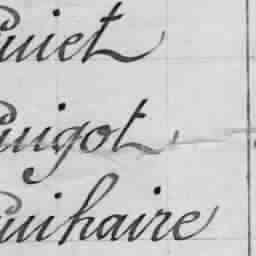 Guiet
Guigot
Guihaire